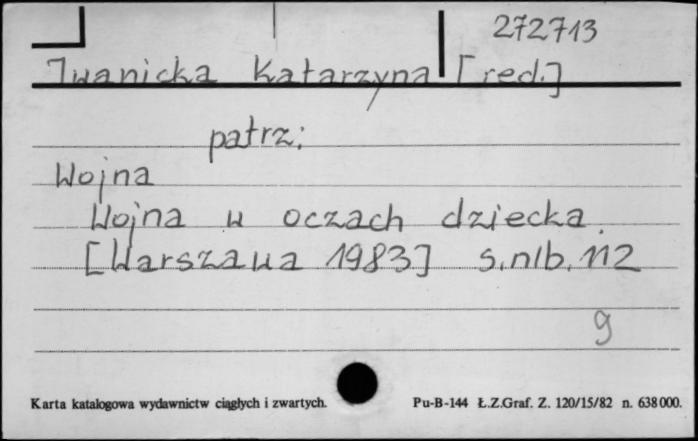 272713
Iwanicka Katarzyna [red.]
patrz:
Wojna
Wojna w oczach dziecka.
[Warszawa 1983] s.nlb. 112
g
Karta katalogowa wydawnictw ciągłych i zwartych. Pu-B-144 Ł.Z.Graf. Z. 120/15/82 n. 638 000.